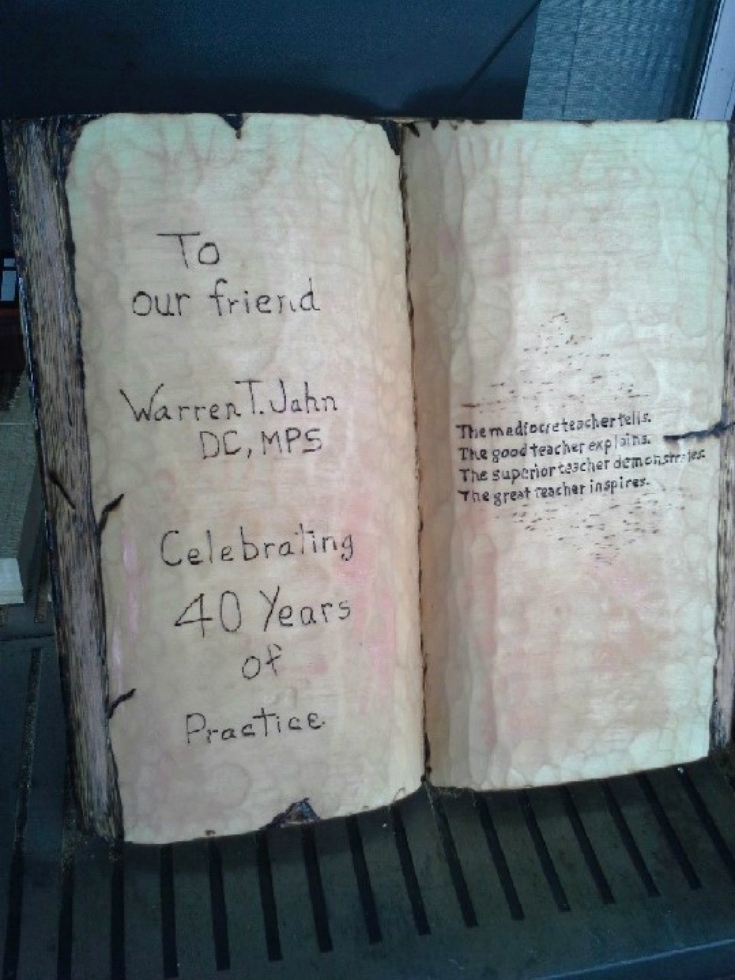 To
our friend
Warren T. Jahn
DC, MPS
Celebrating
40 Years
of
Practice
The mediocre teacher tells.
The good teacher explains.
The superior teacher demonstrates.
The great teacher inspires.